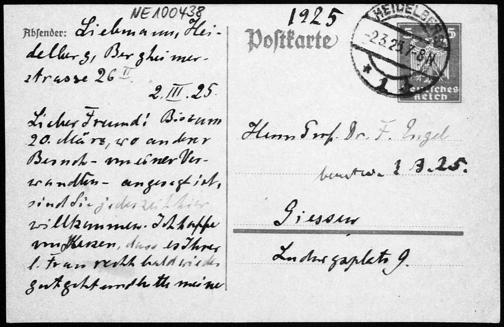 NE100438
1925
Absender: Liebmann, Hei-
delberg, Bergheimer-
strasse 26 II
2. III. 25
Lieber Freund! Bis zum
20. März, wo anderer
Besuch - von einer Ver-
wandten - angesagt ist,
sind Sie jederzeit hier
willkommen. Ich hoffe
von Herzen, dass es Ihrer
l. Frau recht bald wieder
gut geht und bitte meine
Postkarte
HEIDELBERG
-2.3.25.7-8 N
* 1
5
Deutsches
Reich
Herrn Prof. Dr. F. Engel
3.25.
Giessen
Ludwigsplatz 9.